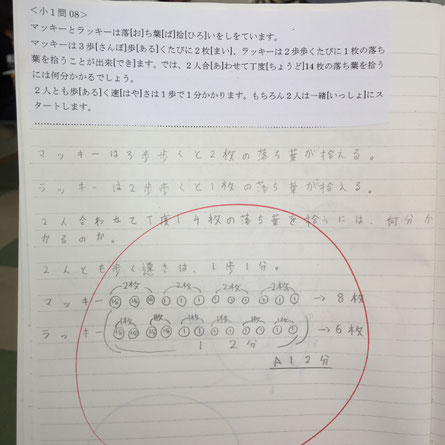 ＜小１問08＞
マッキーとラッキーは落[お]ち葉[ば]拾[ひろ]いをしをています。
マッキーは３歩[さんぽ]歩[ある]くたびに２枚[まい]、ラッキーは２歩歩くたびに１枚の落ち
葉を拾うことが出来[でき]ます。では、２人合[あ]わせて丁度[ちょうど]14枚の落ち葉を拾う
には何分かかるでしょう。
２人とも歩[ある]く速[はや]さは１歩で１分かかります。もちろん２人は一緒[いっしょ]にス
タートします。
マッキーは３歩歩くと２枚の落ち葉が拾える。
ラッキーは２歩歩くと１枚の落ち葉が拾える。
２人合わせて丁度１４枚の落ち葉を拾うには、何分か
かるのか。
２人とも歩く速さは、１歩１分。
2枚 2枚 2枚 2枚
マッキー → 8枚
1枚 1枚 1枚 1枚 1枚
ラッキー → 6枚
１２分
A１２分